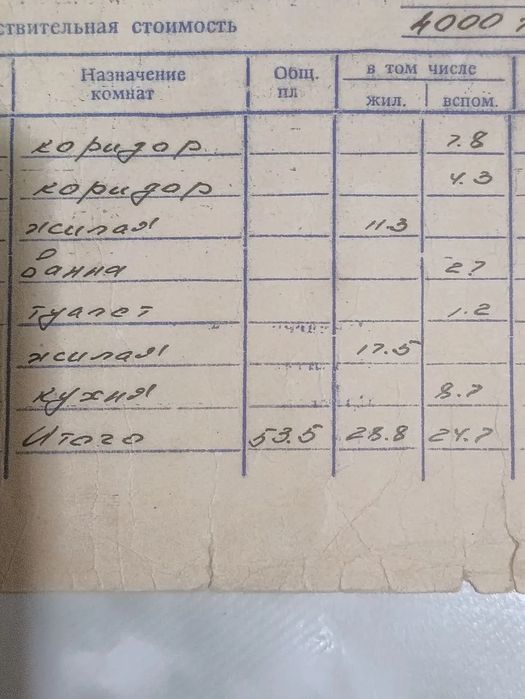 ствительная стоимость 4000
Назначение комнат Общ. пл в том числе
жил. вспом.
коридор 7.8
коридор 4.3
жилая 11.3
ванна 2.7
туалет 1.2
жилая 17.5
кухня 8.7
Итого 53.5 28.8 24.7